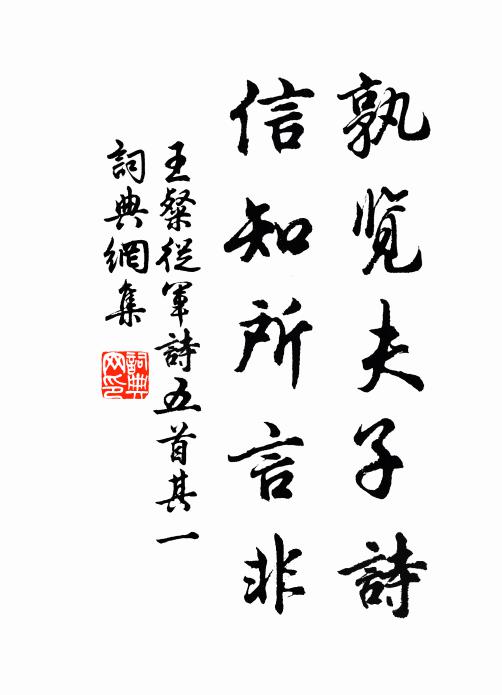 孰覽夫子詩
信知所言非
王粲從軍詩五首其一
詞典網集
詞典網印